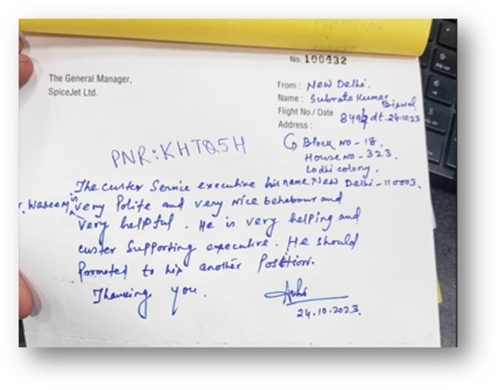 No. 100432
The General Manager,
SpiceJet Ltd.
From : New Delhi.
Name : Subrata Kumar Biswal
Flight No./ Date 8496 dt. 24.10.23
Address :
G Block No - 18,
House no - 323,
Lodhi colony,
New Delhi - 110003.
PNR: KHTQ5H
The custer Service executive his name is
r. Waseem, very Polite and very nice behebour and
very helpful. He is very helping and
custer Supporting executive. He should
Pormoted to his another Position.
Thanking you.
24.10.2023